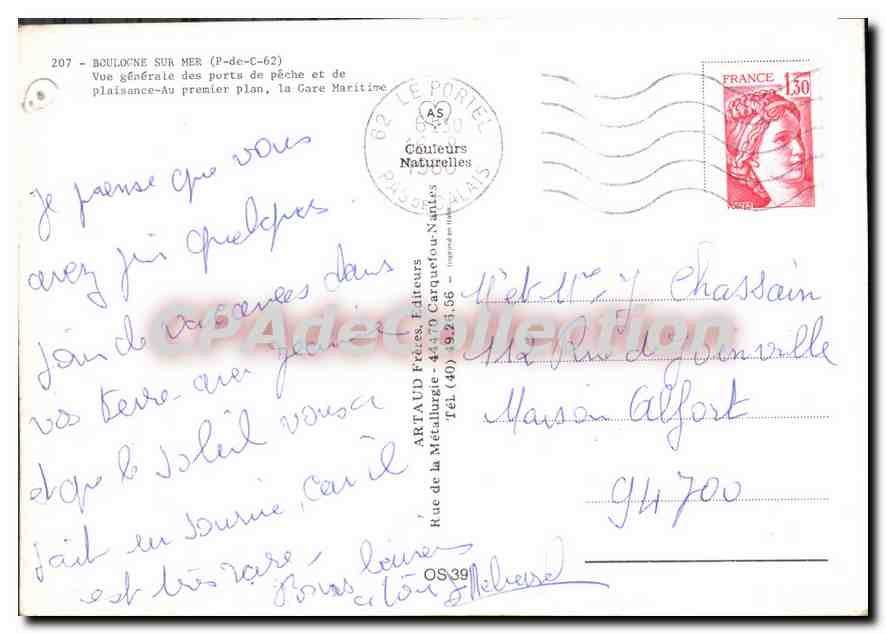 207 - BOULOGNE SUR MER (P-de-C-62)
Vue générale des ports de pêche et de
plaisance-Au premier plan, la Gare Maritime
je pense que vous
avez pris quelques
jours de vacances dans
vos terre
et que le soleil vous a
fait un sourire, car il
est très rare
Bons
à tous
62 LE PORTEL
PAS DE CALAIS
1980
AS
Couleurs
Naturelles
ARTAUD Frères, Editeurs
Rue de la Métallurgie - 44470 Carquefou-Nantes
Tél. (40) 49.26.66 -
Imprimé en Italie
OS 39
FRANCE
1,30
POSTES
Mr et Mme J Chassain
112 Rue de Joinville
Maison Alfort
94700
CPAdeCollection